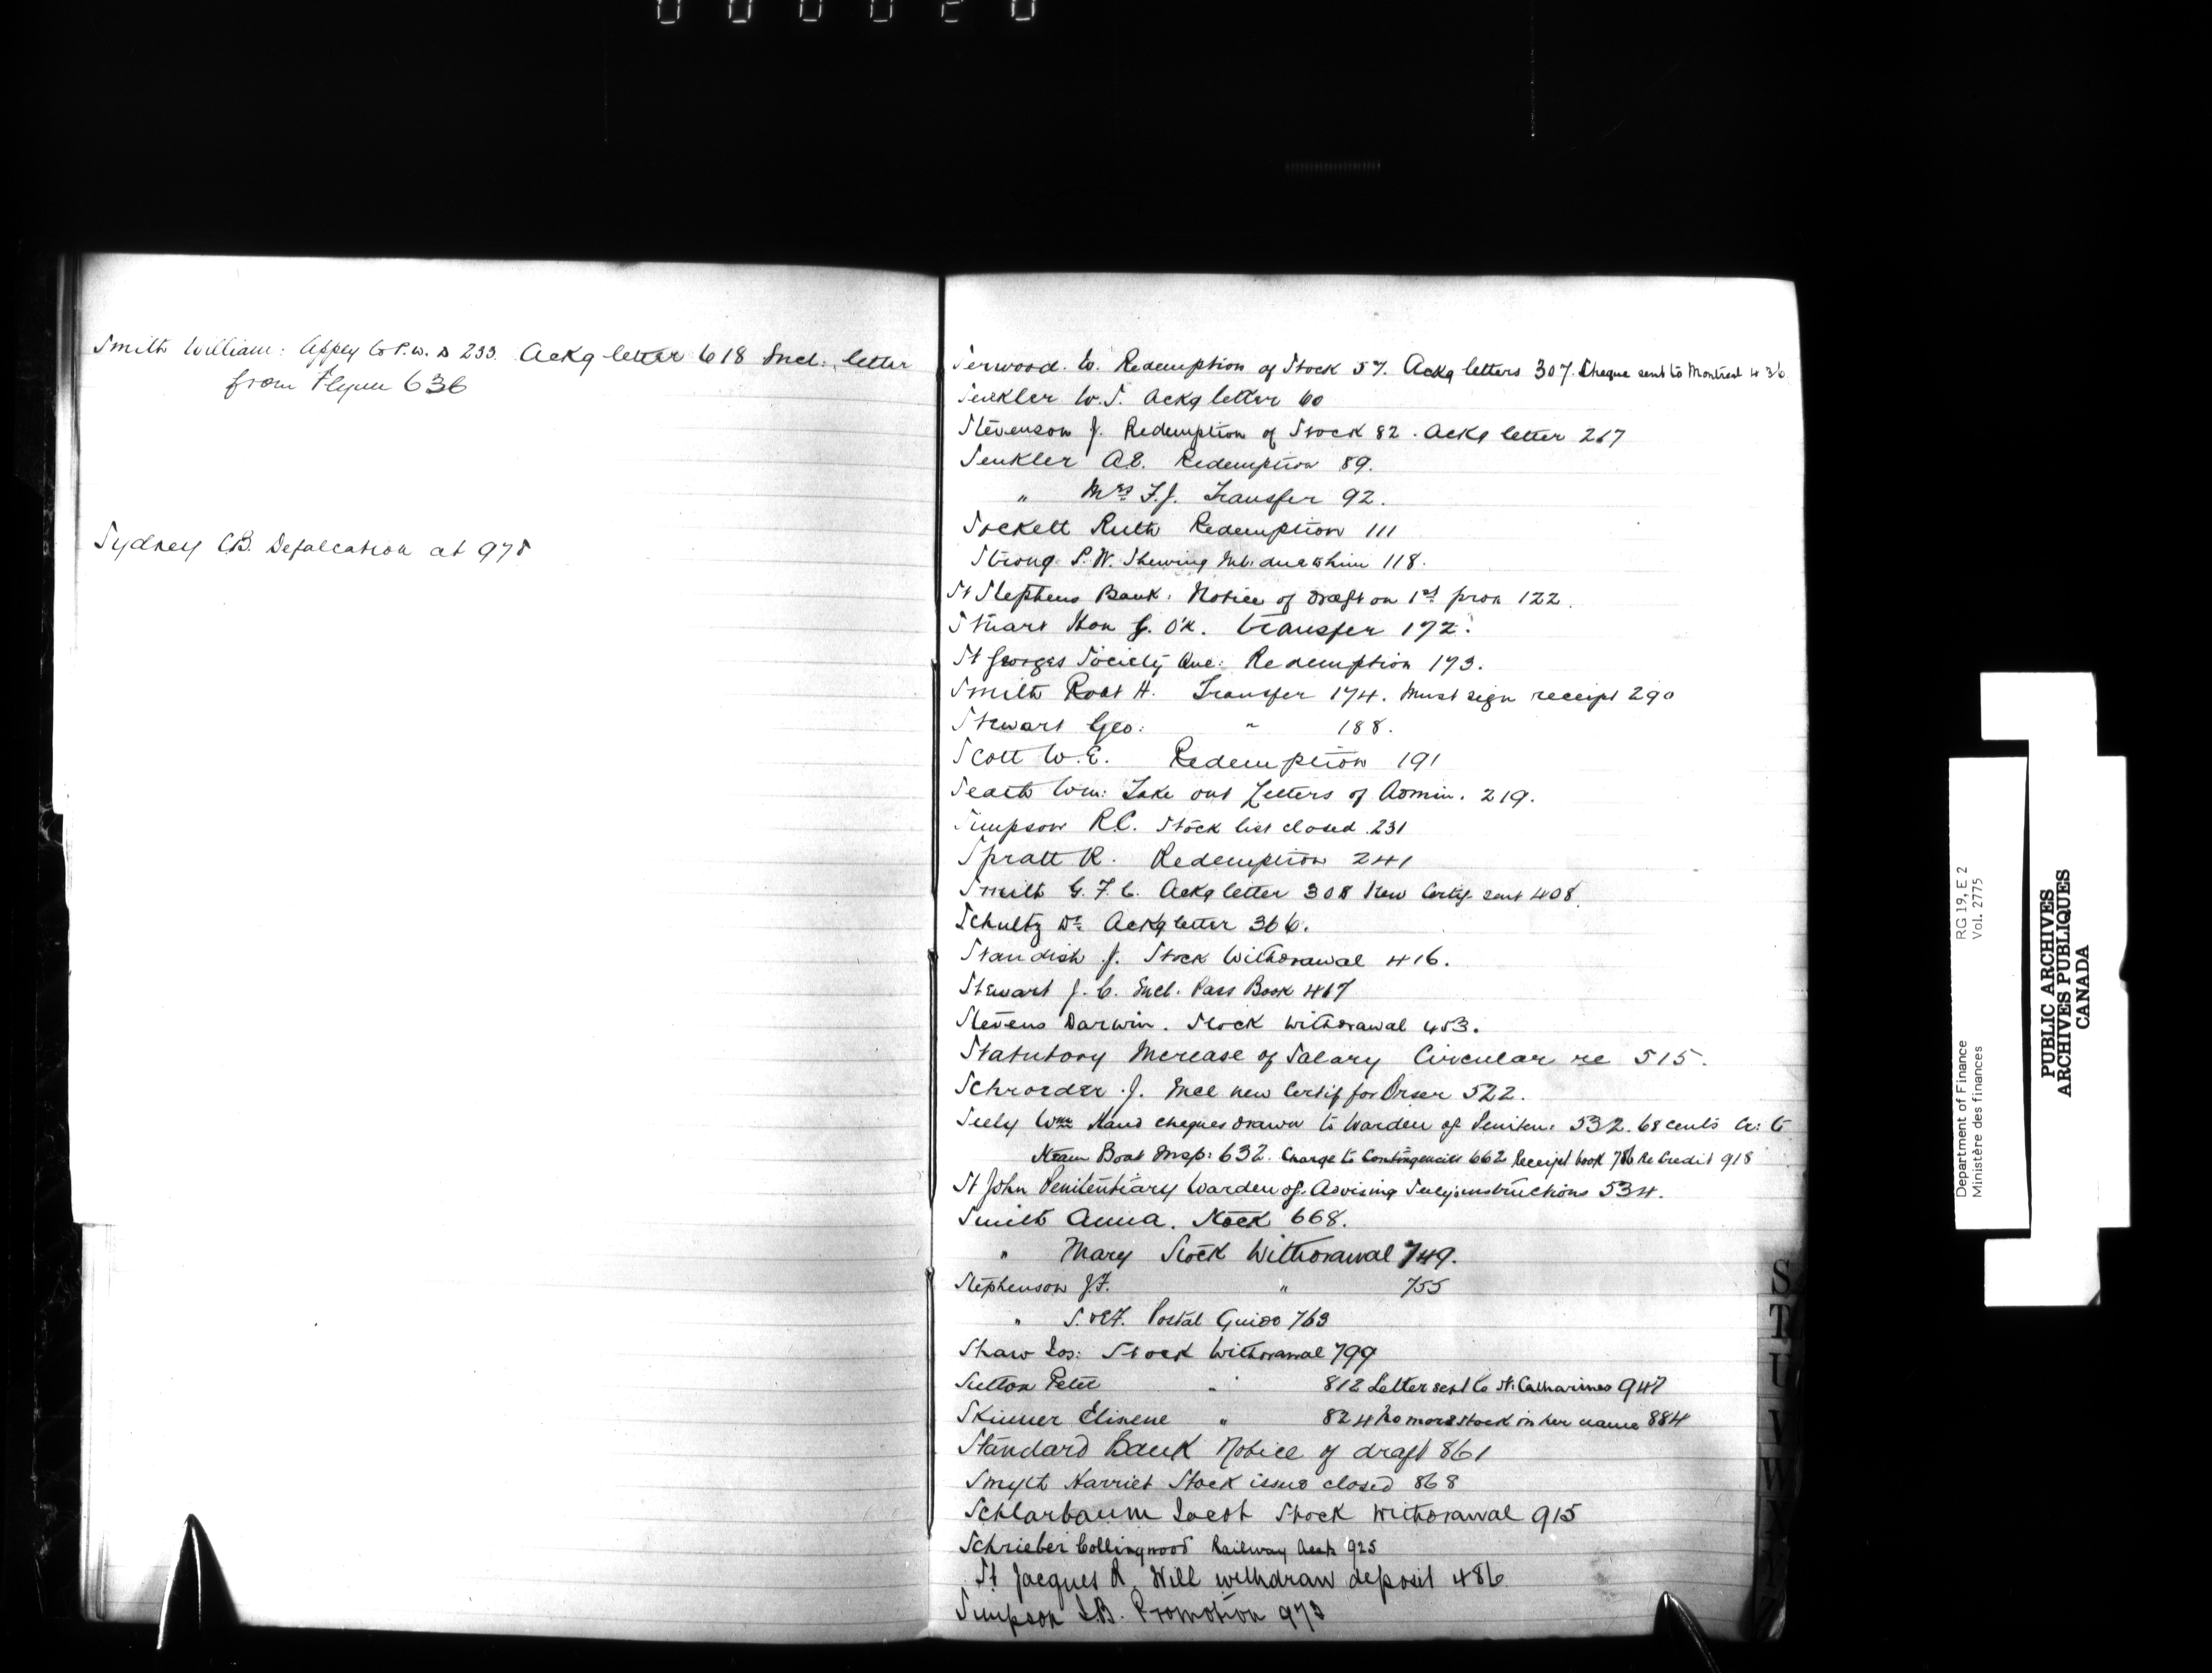 Smith William: Appey to P.W. D 233. Ackg letter 618 Encl: letter
from Flynn 636
Sydney C.B. Defalcation at 975
Serwood. W. Redemption of Stock 57. Ackg letters 307. Cheque sent to Montreal 436
Senkler W.S. Ackg letter 60
Stevenson J. Redemption of Stock 82. Ackg letter 267
Senkler A.E. Redemption 89.
" Mrs F.J. Transfer 92.
Sockett Ruth Redemption 111
Strong P.W. Shewing Int. due to him 118.
St Stephens Bank. Notice of Draft on 1st pron 122.
Stuart Hon G. O'K. Transfer 172.
St Georges Society Que: Redemption 173.
Smith Robt H. Transfer 174. Must sign receipt 290
Stewart Geo: " 188.
Scott W.E. Redemption 191
Seath Wm: Take out Letters of Admin. 219.
Simpson R.C. Stock list closed 231
Spratt R. Redemption 241
Smith G.F.C. Ackg letter 308 New Certif. sent 408.
Schultz Dr. Ackg letter 366.
Standish J. Stock Withdrawal 416.
Stewart J.C. Encl. Pass Book 417
Stevens Darwin. Stock withdrawal 453.
Statutory Increase of Salary Circular re 515.
Schroeder J. Encl new Certif for Orser 522.
Seely Wm Hand cheques drawn to Warden of Peniten: 532. 68 cents Cr: to
Steam Boat Insp: 632. Charge to Contingencies 662 Receipt book 786 Re Credit 918
St John Penitentiary Warden of. Advising Seely instructions 534.
Smith Anna. Stock 668.
" Mary Stock Withdrawal 749.
Stephenson J.F. " 755
" S. & F. Postal Guide 763
Shaw Jos: Stock Withdrawal 799
Sutton Peter " 812 Letter sent to St. Catharines 947
Skinner " 824 No more stock in her name 884
Standard Bank Notice of draft 861
Smyth Harriet Stock issue closed 868
Schlarbaum Jacob Stock Withdrawal 915
Schrieber Collingwood Railway Acct 925
St Jacques R Will withdraw deposit 486
Simpson J.B. Promotion 973
S
T
U
V
W
X
Y
Z
Department of Finance RG 19, E 2
Ministère des finances Vol. 2775
PUBLIC ARCHIVES
ARCHIVES PUBLIQUES
CANADA